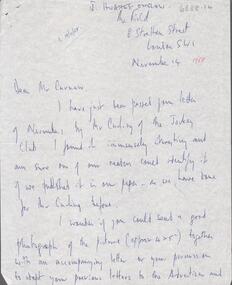 J. HUGHES-ONSLOW
The Field
8 Stratton Street
London SW1
November 14
Dear Mr Curnow
I have just been passed your letter
of November, by Mr Carding of the Jockey
Club. I found it immensely interesting and
am sure one of our readers could identify it
if we published it in our paper - as we have done
for Mr Carding before.
I wonder if you could send a good
photograph of the picture (approx 4 x 5") together
with an accompanying letter or your permission
to adapt your previous letters to the Advertiser and